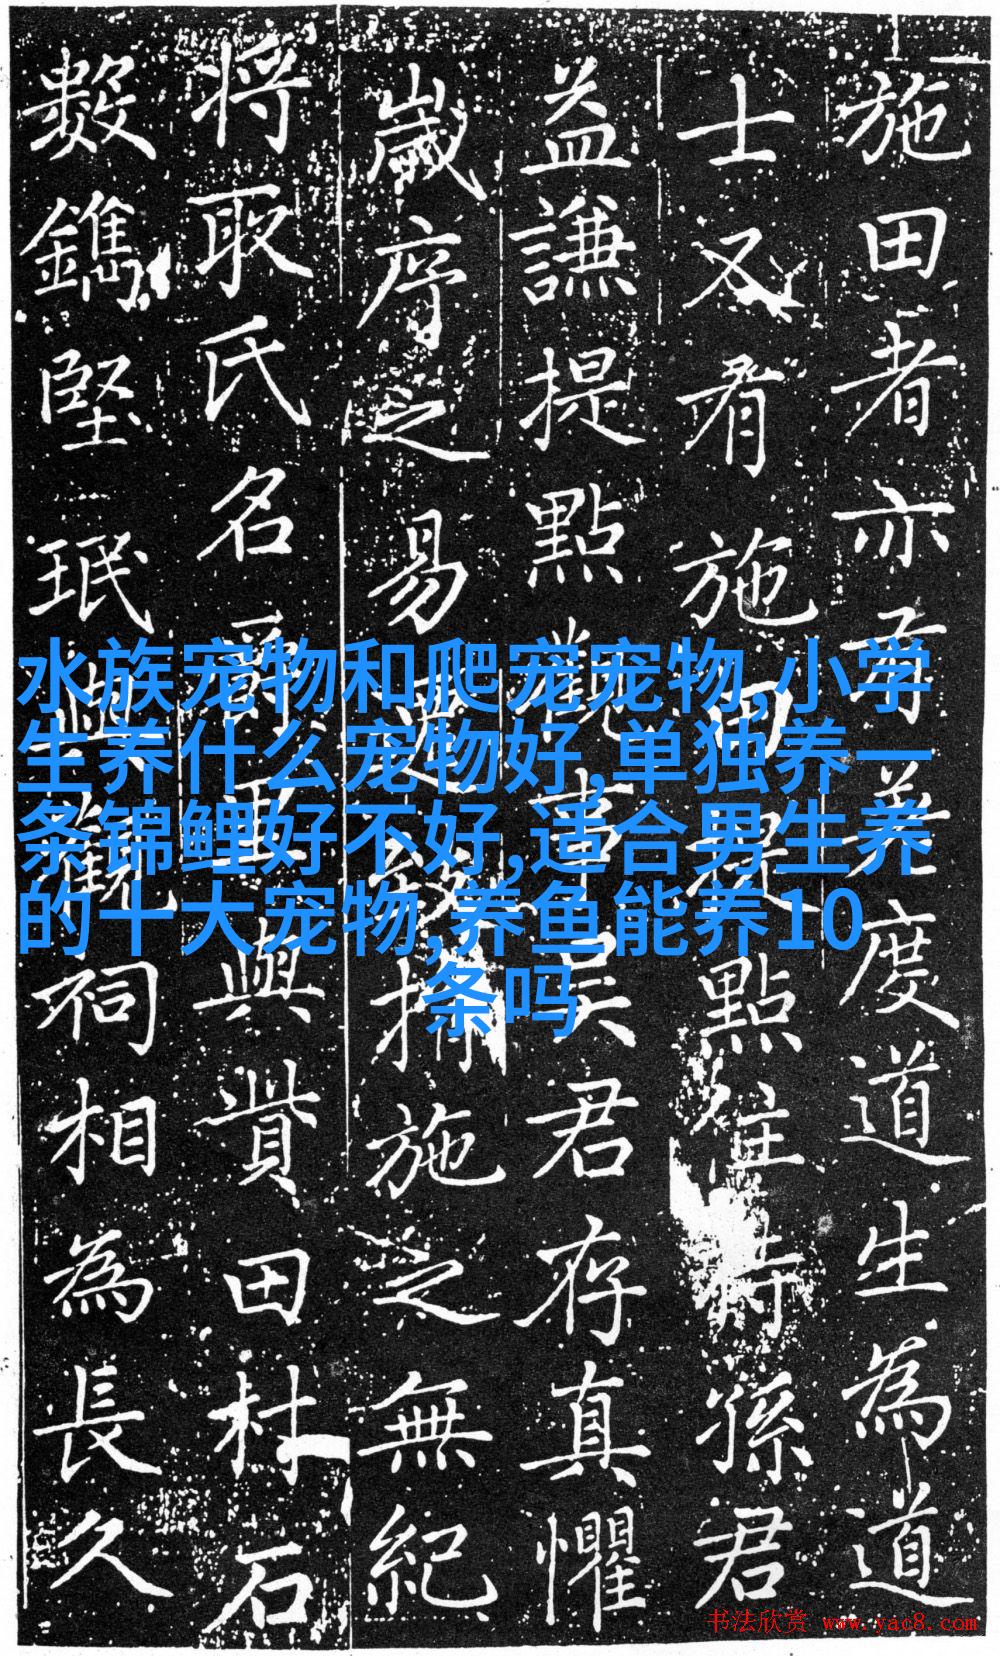 施田者亦有善度道生為道
士又有施田提點住持孫君
益謙提點觀事吳君存真懼
歲序之易施之無紀
將取氏名與貲田杜石
數鐫堅珉祠相為長久
水族宠物和爬宠宠物,小学
生养什么宠物好,单独养一
条锦鲤好不好,适合男生养
的十大宠物,养鱼能养10
条吗
书法欣赏 www.yac8.com